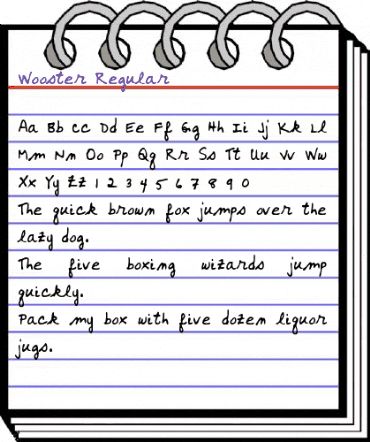 Wooster Regular
Aa Bb Cc Dd Ee Ff Gg Hh Ii Jj Kk Ll
Mm Nn Oo Pp Qq Rr Ss Tt Uu Vv Ww
Xx Yy Zz 1 2 3 4 5 6 7 8 9 0
The quick brown fox jumps over the
lazy dog.
The five boxing wizards jump
quickly.
Pack my box with five dozen liquor
jugs.